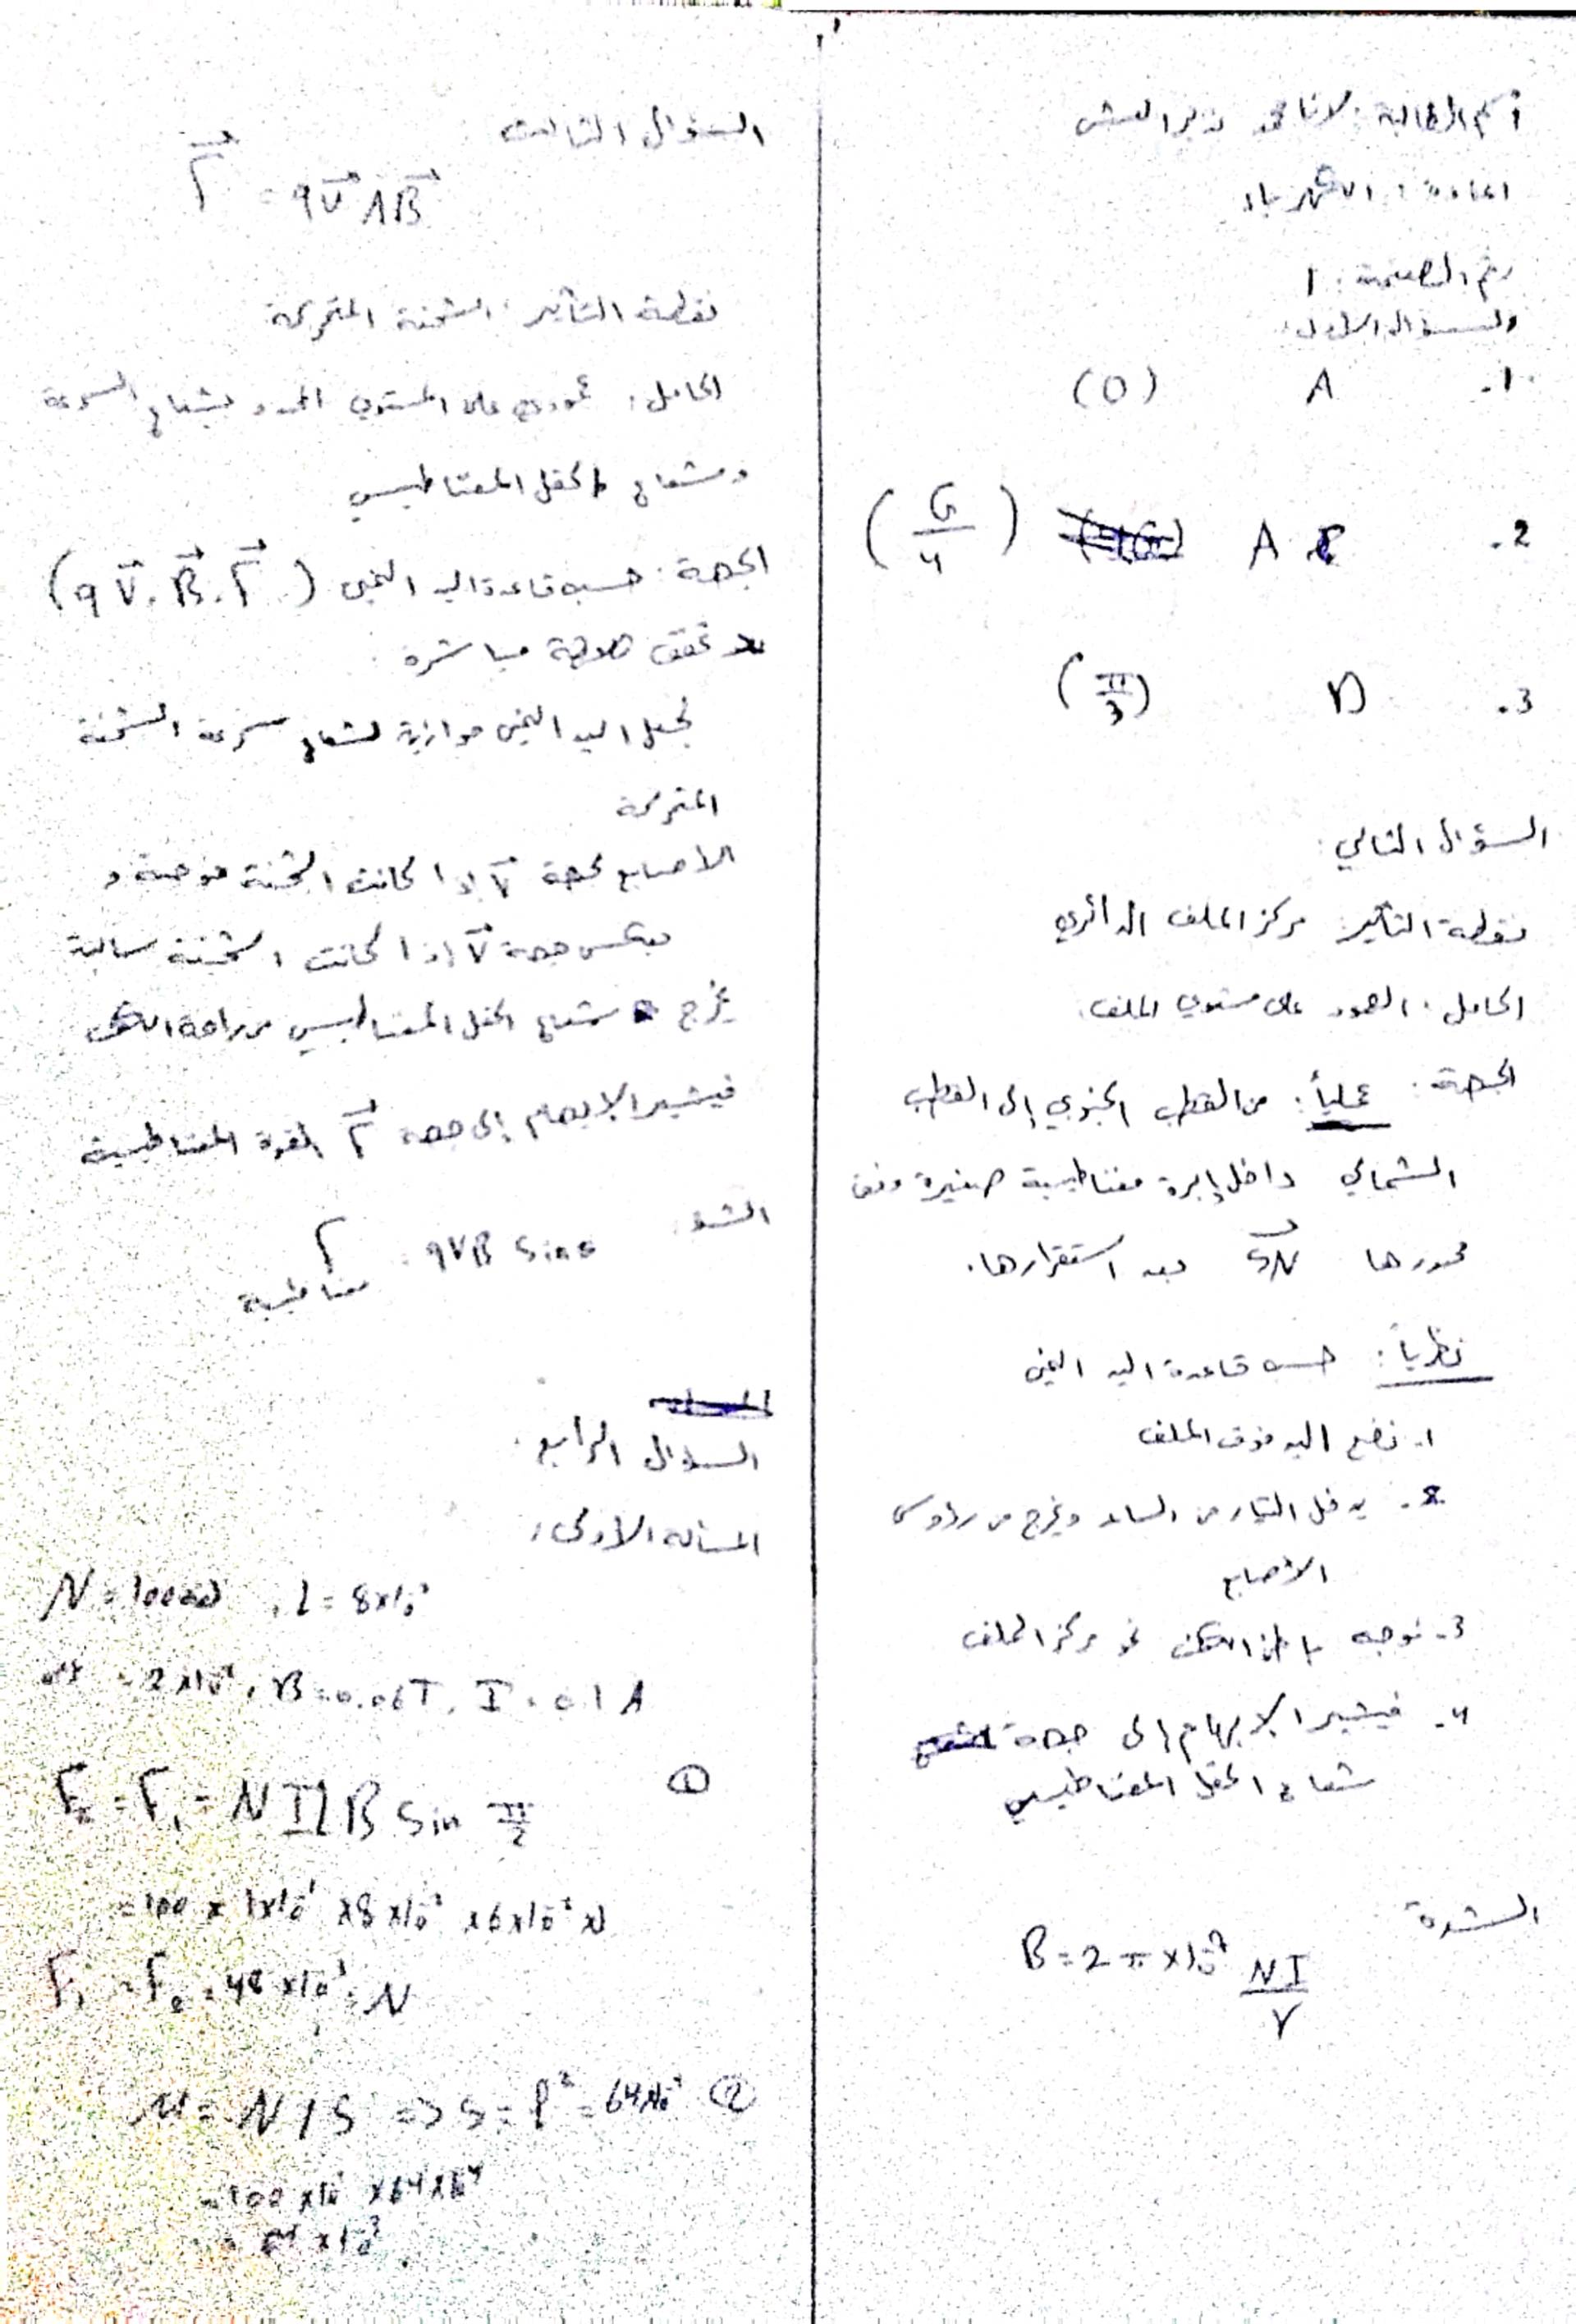 اسم الطالبة:
المادة: الكهرباء
رقم الصفحة: 1
السؤال الأول:
1. A (0)
2. A (G/4)
3. D (π/3)
السؤال الثاني:
نقطة التأثير: مركز الملف الدائري
الحامل: العمود على مستوي الملف.
الجهة: عملياً: من القطب الجنوبي إلى القطب
الشمالي داخل إبرة مغناطيسية صغيرة وفق
محورها SN بعد استقرارها.
نظرياً: حسب قاعدة اليد اليمنى
1- نضع اليد فوق الملف
2- يدخل التيار من الساعد ويخرج من رؤوس
الأصابع
3- نوجه باطن الكف نحو مركز الملف
4- فيشير الإبهام إلى جهة
شعاع الحقل المغناطيسي
الشدة
B = 2π×10⁻⁷ NI/r
السؤال الثالث
F = qv ∧ B
نقطة التأثير: الشحنة المتحركة
الحامل: عمودي على المستوي المحدد بشعاع السرعة
وشعاع الحقل المغناطيسي
الجهة: حسب قاعدة اليد اليمنى (qv . B . F)
تحقق ثلاثية مباشرة.
نجعل اليد اليمنى موازية لشعاع سرعة الشحنة
المتحركة
الأصابع بجهة v إذا كانت الشحنة موجبة و
بعكس جهة v إذا كانت الشحنة سالبة
يخرج شعاع الحقل المغناطيسي من راحة الكف
فيشير الإبهام إلى جهة F القوة المغناطيسية
الشدة: F مغناطيسية = qvB sin θ
السؤال الرابع.
المسألة الأولى:
N = 100 , l = 8×10⁻²
B = 0.06T , I = 0.1 A
① F₂ = F₁ = N I l B sin π/2
= 100 × 1×10⁻¹ × 8×10⁻² × 6×10⁻² × 1
F₁ = F₂ = 48×10⁻³ N
② M = N I S => S = l² = 64×10⁻⁴
= 100 × 10⁻¹ × 64×10⁻⁴
= 64×10⁻³